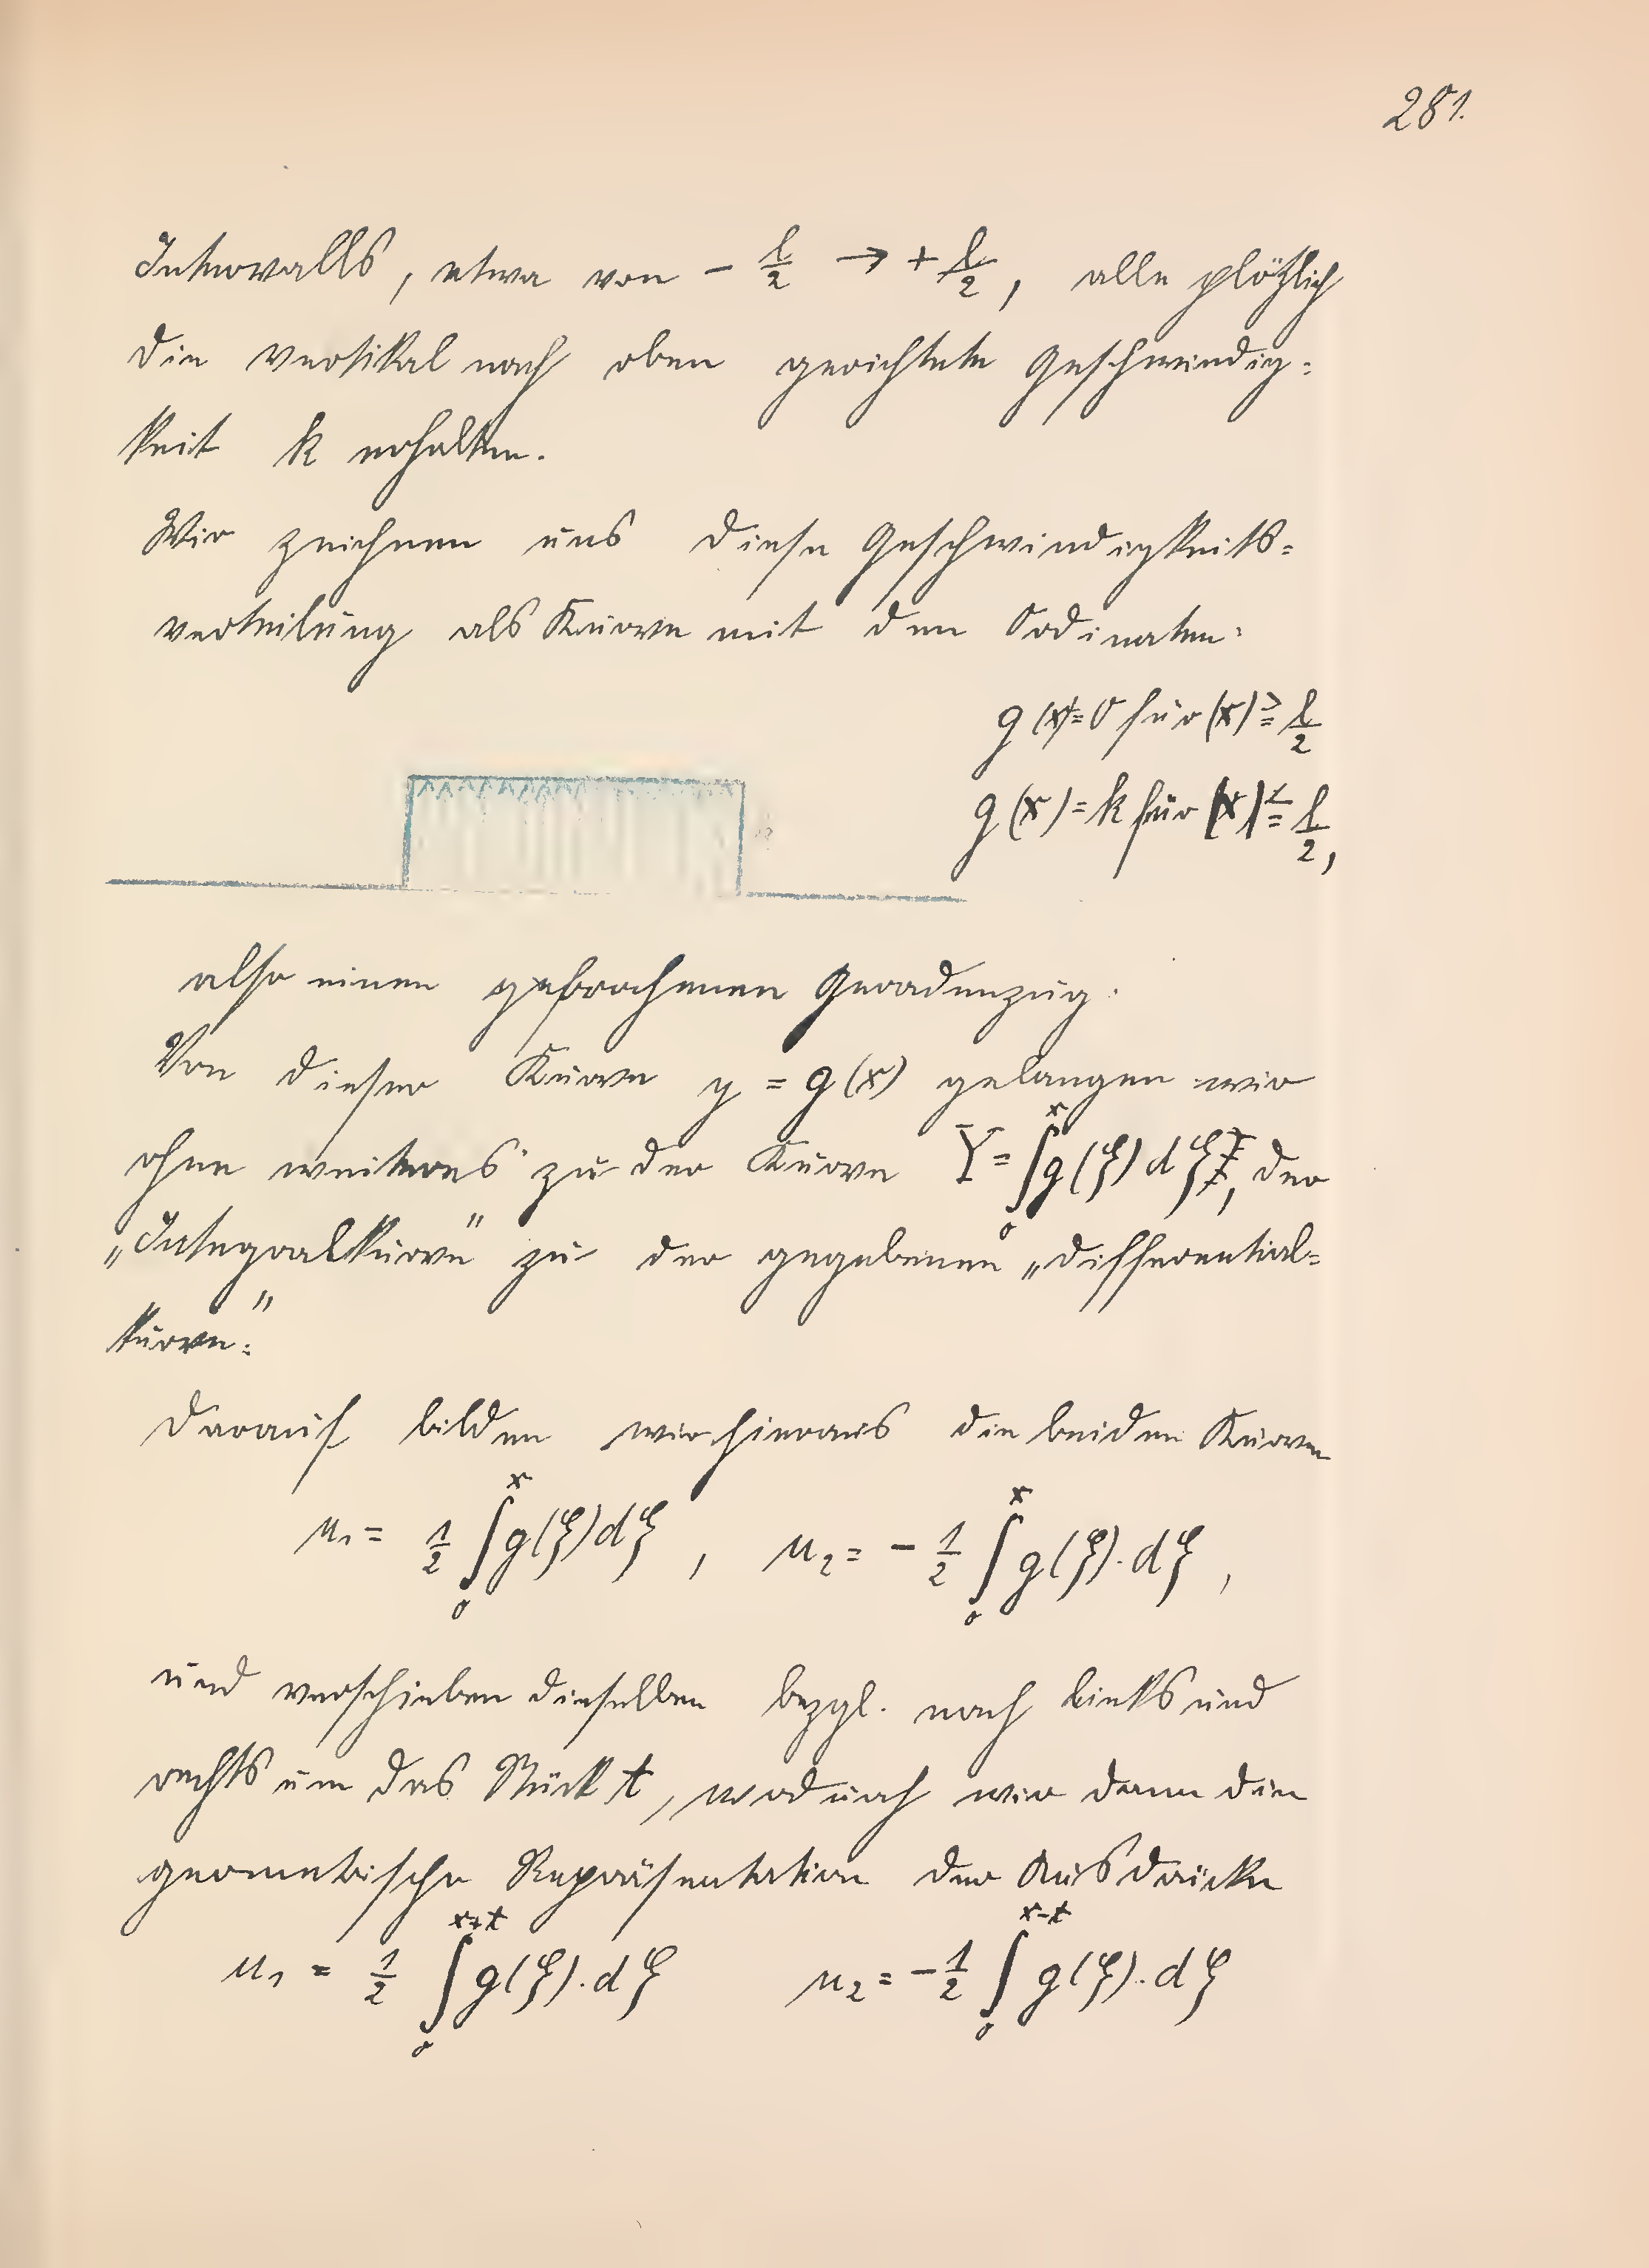 281.
Intervalls, etwa von - l/2 → + l/2, alle plötzlich
die vertikal nach oben gerichtete Geschwindig=
keit k erhalten.
Wir zeichnen uns diese Geschwindigkeits=
verteilung als Kurve mit den Ordinaten:
g(x)=0 für (x) ≧ l/2
g(x)=k für (x) ≦ l/2,
also einen gebrochenen Geradenzug.
Von dieser Kurve y = g(x) gelangen wir
ohne weiteres zu der Kurve Y = ∫₀ˣ g(ξ) dξ, der
„Integralkurve" zu der gegebenen „Differential=
kurve".
Darauf bilden wir hieraus die beiden Kurven
u₁ = 1/2 ∫₀ˣ g(ξ)dξ , u₂ = - 1/2 ∫₀ˣ g(ξ).dξ ,
und verschieben dieselben bezgl. nach links und
rechts um das Stück t, wodurch wir dann die
geometrische Repräsentation der Ausdrücke
u₁ = 1/2 ∫₀ˣ⁺ᵗ g(ξ).dξ u₂ = - 1/2 ∫₀ˣ⁻ᵗ g(ξ).dξ